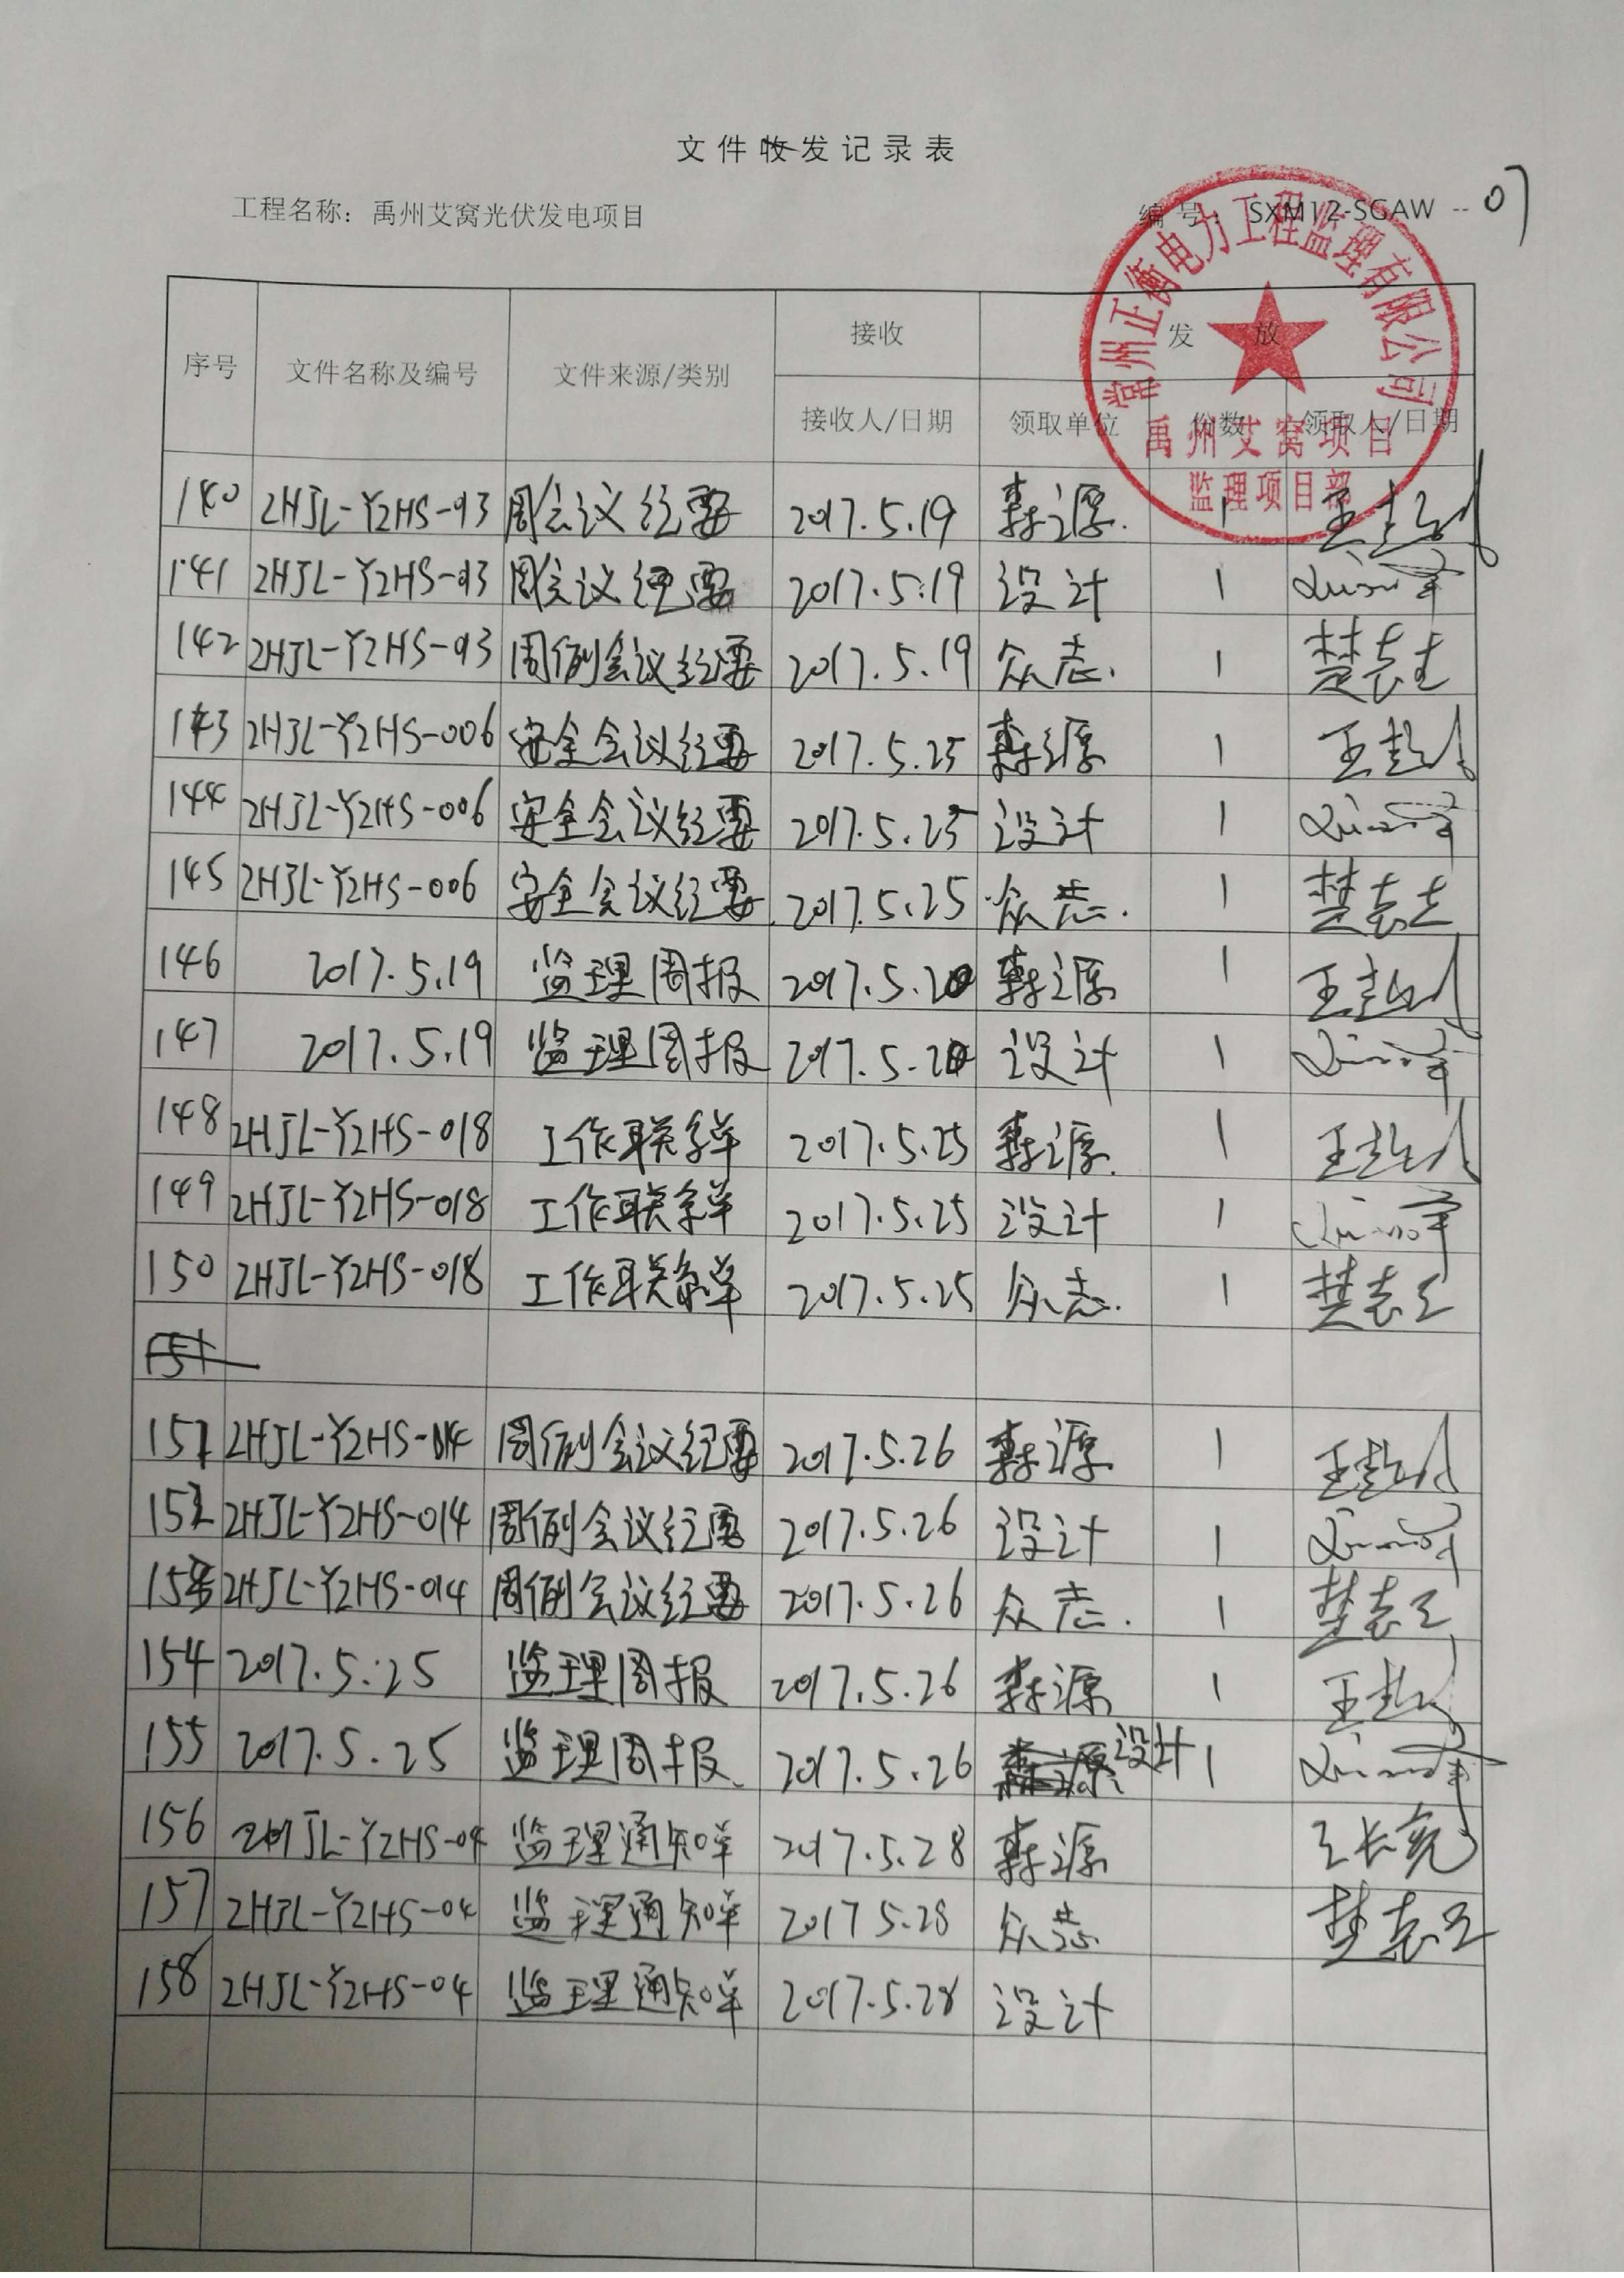 文件收发记录表
工程名称：禹州艾窝光伏发电项目 编号：SXM12-SGAW--07
常州正衡电力工程监理有限公司
禹州艾窝项目
监理项目部
序号 文件名称及编号 文件来源/类别 接收 发放
接收人/日期 领取单位 份数 领取人/日期
140 ZHJL-YZHS-013 周会议纪要 2017.5.19 森源. 1
141 ZHJL-YZHS-013 周会议纪要 2017.5.19 设计 1
142 ZHJL-YZHS-013 周例会议纪要 2017.5.19 众志. 1
143 ZHJL-YZHS-006 安全会议纪要 2017.5.25 森源 1
144 ZHJL-YZHS-006 安全会议纪要 2017.5.25 设计 1
145 ZHJL-YZHS-006 安全会议纪要 2017.5.25 众志. 1
146 2017.5.19 监理周报 2017.5.20 森源 1
147 2017.5.19 监理周报 2017.5.20 设计 1
148 ZHJL-YZHS-018 工作联系单 2017.5.25 森源. 1
149 ZHJL-YZHS-018 工作联系单 2017.5.25 设计 1
150 ZHJL-YZHS-018 工作联系单 2017.5.25 众志. 1
151
151 ZHJL-YZHS-014 周例会议纪要 2017.5.26 森源 1
152 ZHJL-YZHS-014 周例会议纪要 2017.5.26 设计 1
153 ZHJL-YZHS-014 周例会议纪要 2017.5.26 众志. 1
154 2017.5.25 监理周报 2017.5.26 森源 1
155 2017.5.25 监理周报. 2017.5.26 森源 设计 1
156 ZHJL-YZHS-04 监理通知单 2017.5.28 森源 王长亮
157 ZHJL-YZHS-04 监理通知单 2017 5.28 众志
158 ZHJL-YZHS-04 监理通知单 2017.5.28 设计